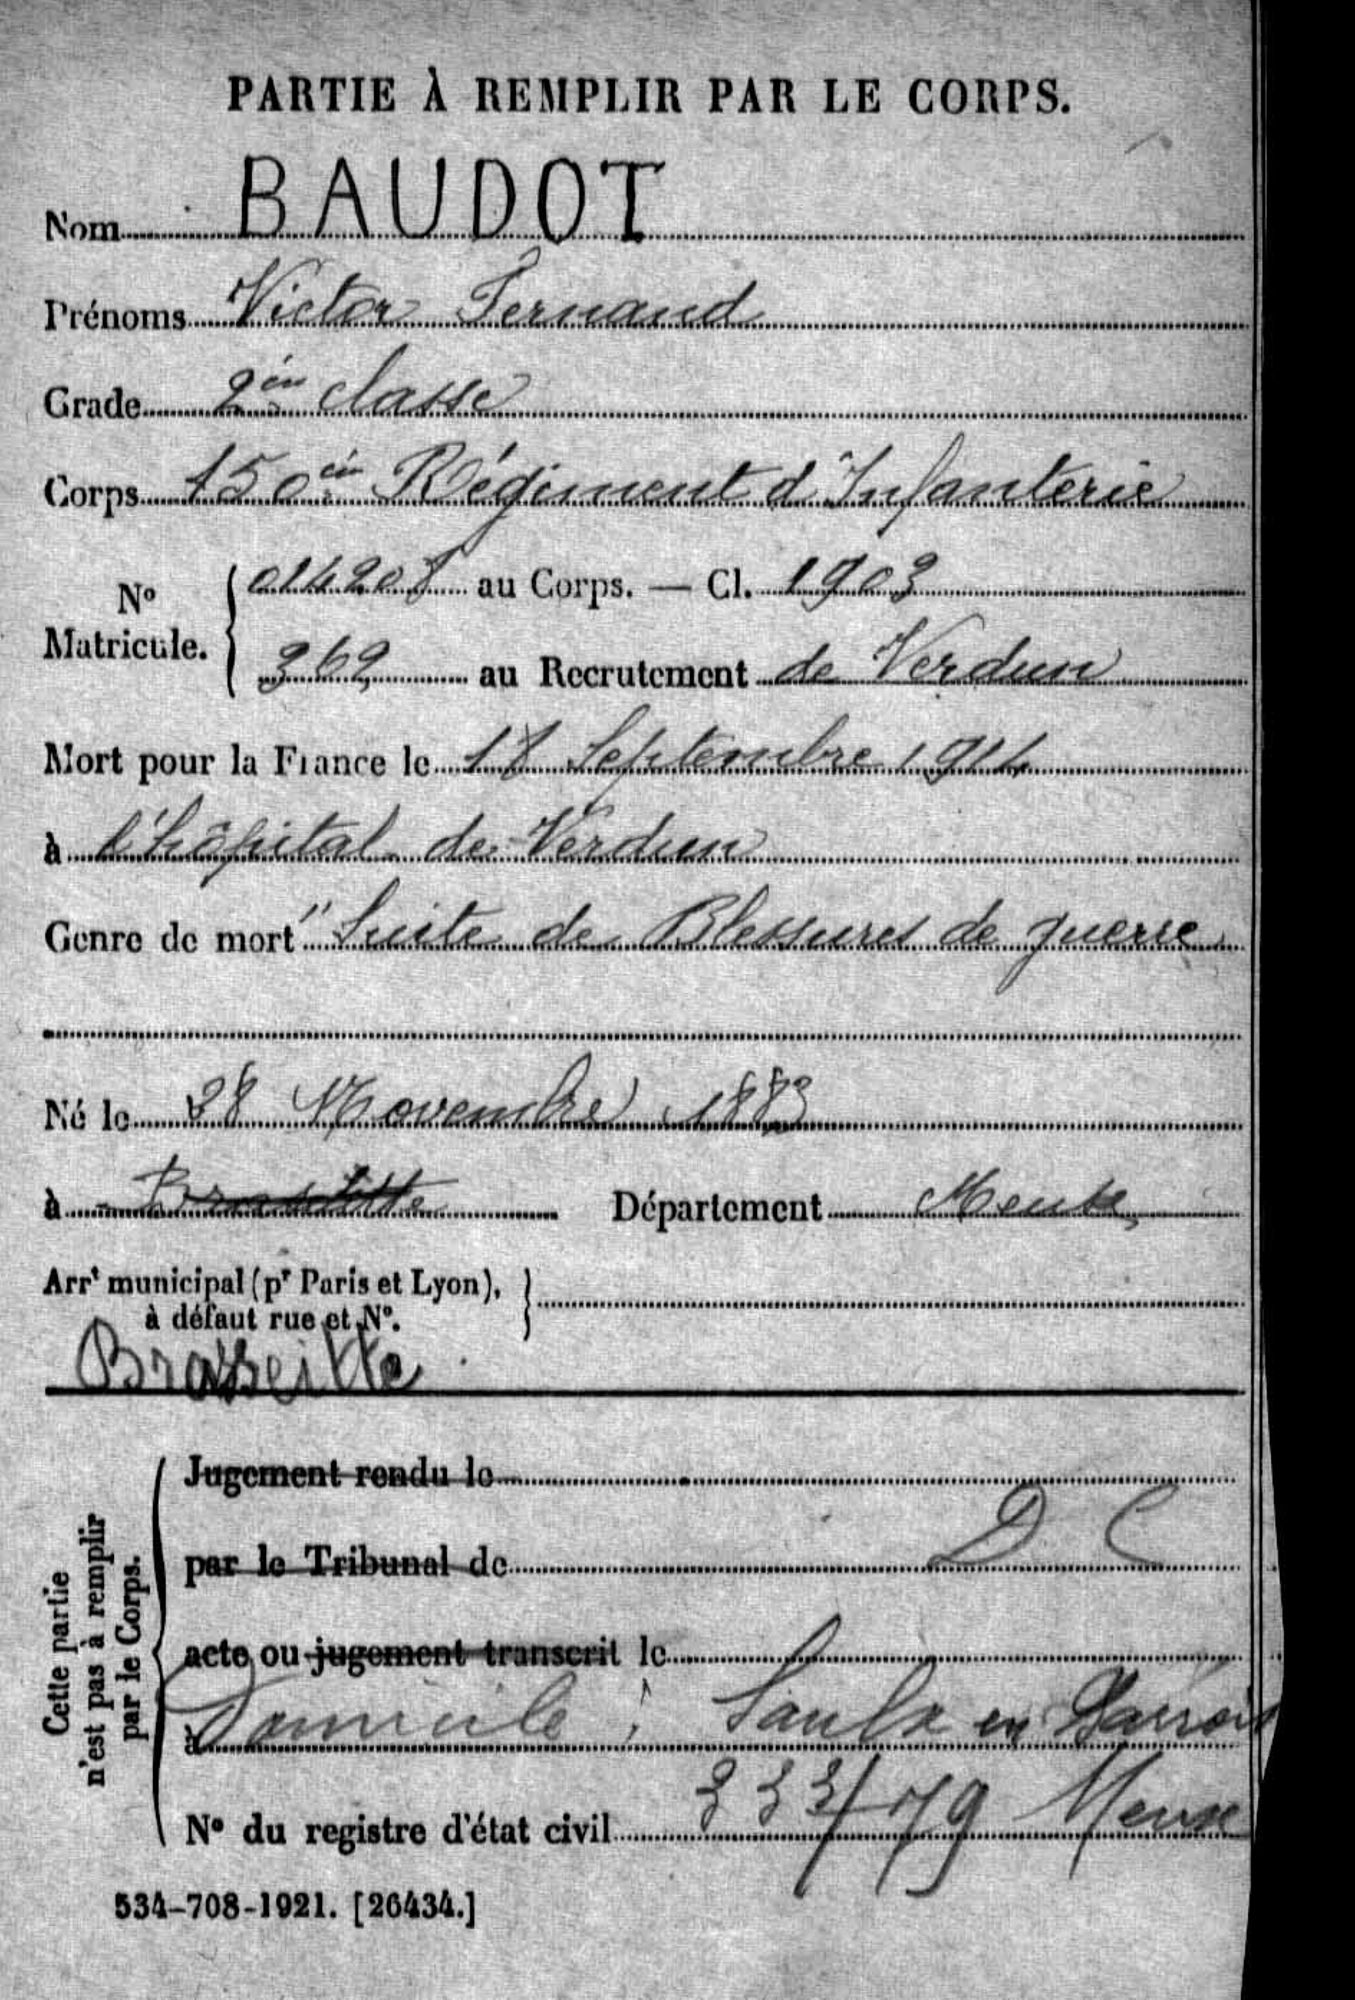 PARTIE À REMPLIR PAR LE CORPS.
Nom BAUDOT
Prénoms Victor Fernand
Grade 2èm classe
Corps 150èm Régiment d'Infanterie
No Matricule. { 014208 au Corps. — Cl. 1903
362 au Recrutement de Verdun
Mort pour la France le 18 Septembre 1914
à l'hôpital de Verdun
Genre de mort "Suite de Blessures de guerre
Né le 28 Novembre 1883
à Brasseitte Département Meuse
Arrt municipal (pr Paris et Lyon),
à défaut rue et No. }
Brasseitte
Cette partie
n'est pas à remplir
par le Corps.
Jugement rendu le
par le Tribunal de D C
acte ou jugement transcrit le
à Domicile : Saulx en Barrois
No du registre d'état civil 333/79 Meuse
534-708-1921. [26434.]